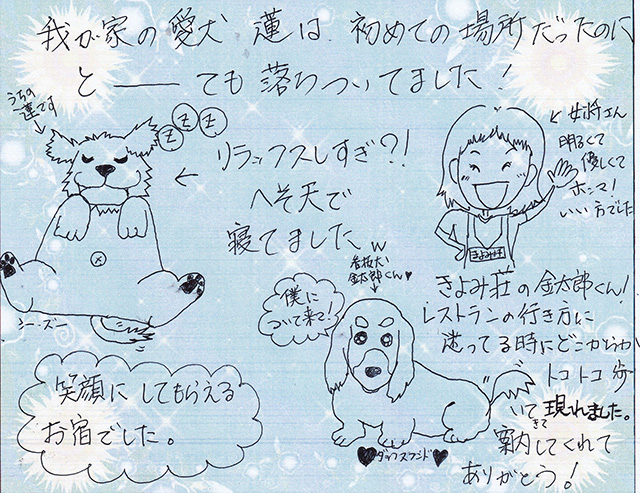 我が家の愛犬 蓮は、初めての場所だったのに
と―――ても落ちついてました!
うちの
蓮です
ZZZ
リラックスしすぎ?!
へそ天で
寝てましたw
シー・ズー
女将さん
明るくて
優しくて
ホンマ!
いい方でした
きよみ荘
看板犬
金太郎くん♥
僕に
ついて来て!
♥ダックスフンド♥
きよみ荘の金太郎くん!
レストランの行き方に
迷ってる時にどこからか
トコトコ歩
いてきて現れました。
案内してくれて
ありがとう!
笑顔にしてもらえる
お宿でした。